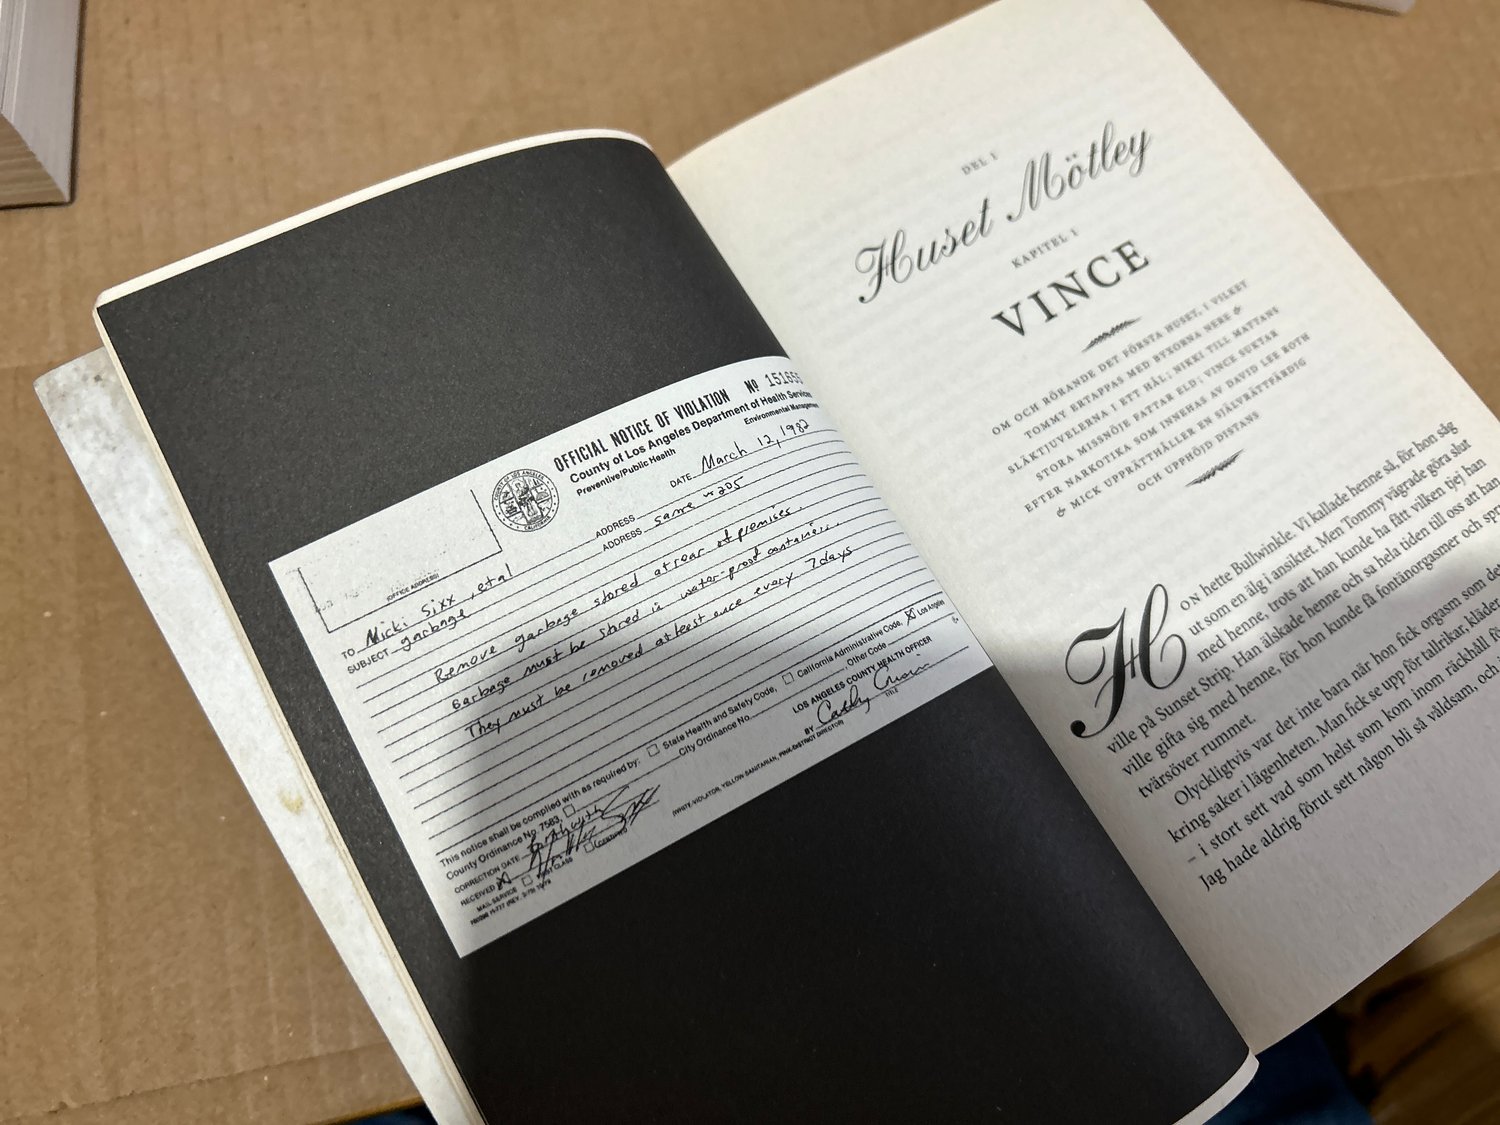 OFFICIAL NOTICE OF VIOLATION Nº 15165
County of Los Angeles Department of Health Services
Preventive/Public Health Environmental Management
DATE March 12, 1982
(OFFICE ADDRESS)
ADDRESS
ADDRESS same #205
TO Nicki Sixx, etal
SUBJECT garbage
Remove garbage stored at rear of premises.
Garbage must be stored in water-proof containers.
They must be removed at least once every 7 days
This notice shall be complied with as required by: State Health and Safety Code, California Administrative Code, Los Angeles
County Ordinance No. 7583, City Ordinance No. , Other Code
CORRECTION DATE Forthwith
LOS ANGELES COUNTY HEALTH OFFICER
RECEIVED X
BY Cathy
TITLE
MAIL SERVICE FIRST CLASS CERTIFIED
(WHITE-VIOLATOR, YELLOW-SANITARIAN, PINK-DISTRICT DIRECTOR)
DEL 1
Huset Mötley
KAPITEL 1
VINCE
OM OCH RÖRANDE DET FÖRSTA HUSET, I VILKET
TOMMY ERTAPPAS MED BYXORNA NERE &
SLÄKTJUVELERNA I ETT HÅL; NIKKI TILL MATTANS
STORA MISSNÖJE FATTAR ELD; VINCE SUKTAR
EFTER NARKOTIKA SOM INNEHAS AV DAVID LEE ROTH
& MICK UPPRÄTTHÅLLER EN SJÄLVRÄTTFÄRDIG
OCH UPPHÖJD DISTANS
HON hette Bullwinkle. Vi kallade henne så, för hon såg
ut som en älg i ansiktet. Men Tommy vägrade göra slut
med henne, trots att han kunde ha fått vilken tjej han
ville på Sunset Strip. Han älskade henne och sa hela tiden till oss att han
ville gifta sig med henne, för hon kunde få fontänorgasmer och
tvärsöver rummet.
Olyckligtvis var det inte bara när hon fick orgasm som
kring saker i lägenheten. Man fick se upp för tallrikar, kläder,
– i stort sett vad som helst som kom inom räckhåll
Jag hade aldrig förut sett någon bli så våldsam, och